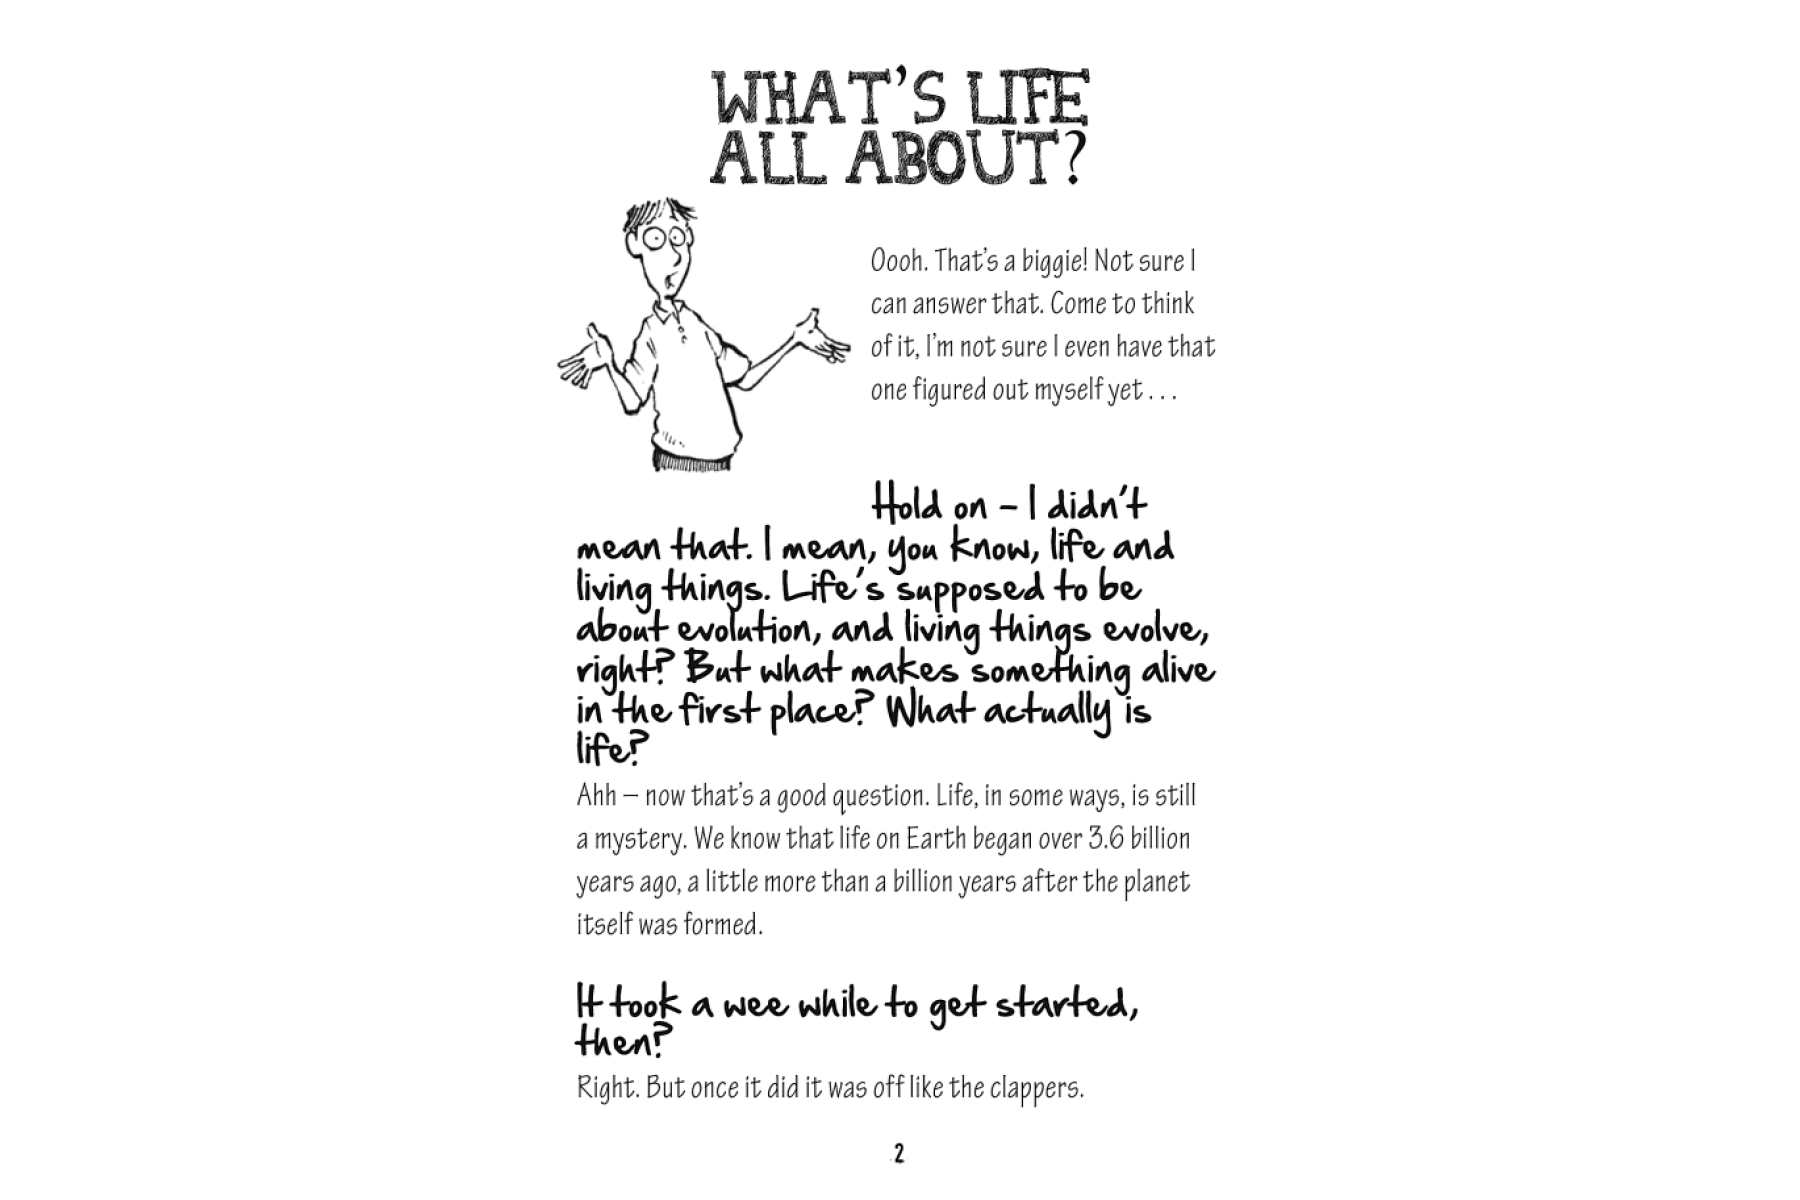 WHAT'S LIFE
ALL ABOUT?
Oooh. That's a biggie! Not sure I
can answer that. Come to think
of it, I'm not sure I even have that
one figured out myself yet . . .
Hold on – I didn't
mean that. I mean, you know, life and
living things. Life's supposed to be
about evolution, and living things evolve,
right? But what makes something alive
in the first place? What actually is
life?
Ahh – now that's a good question. Life, in some ways, is still
a mystery. We know that life on Earth began over 3.6 billion
years ago, a little more than a billion years after the planet
itself was formed.
It took a wee while to get started,
then?
Right. But once it did it was off like the clappers.
2